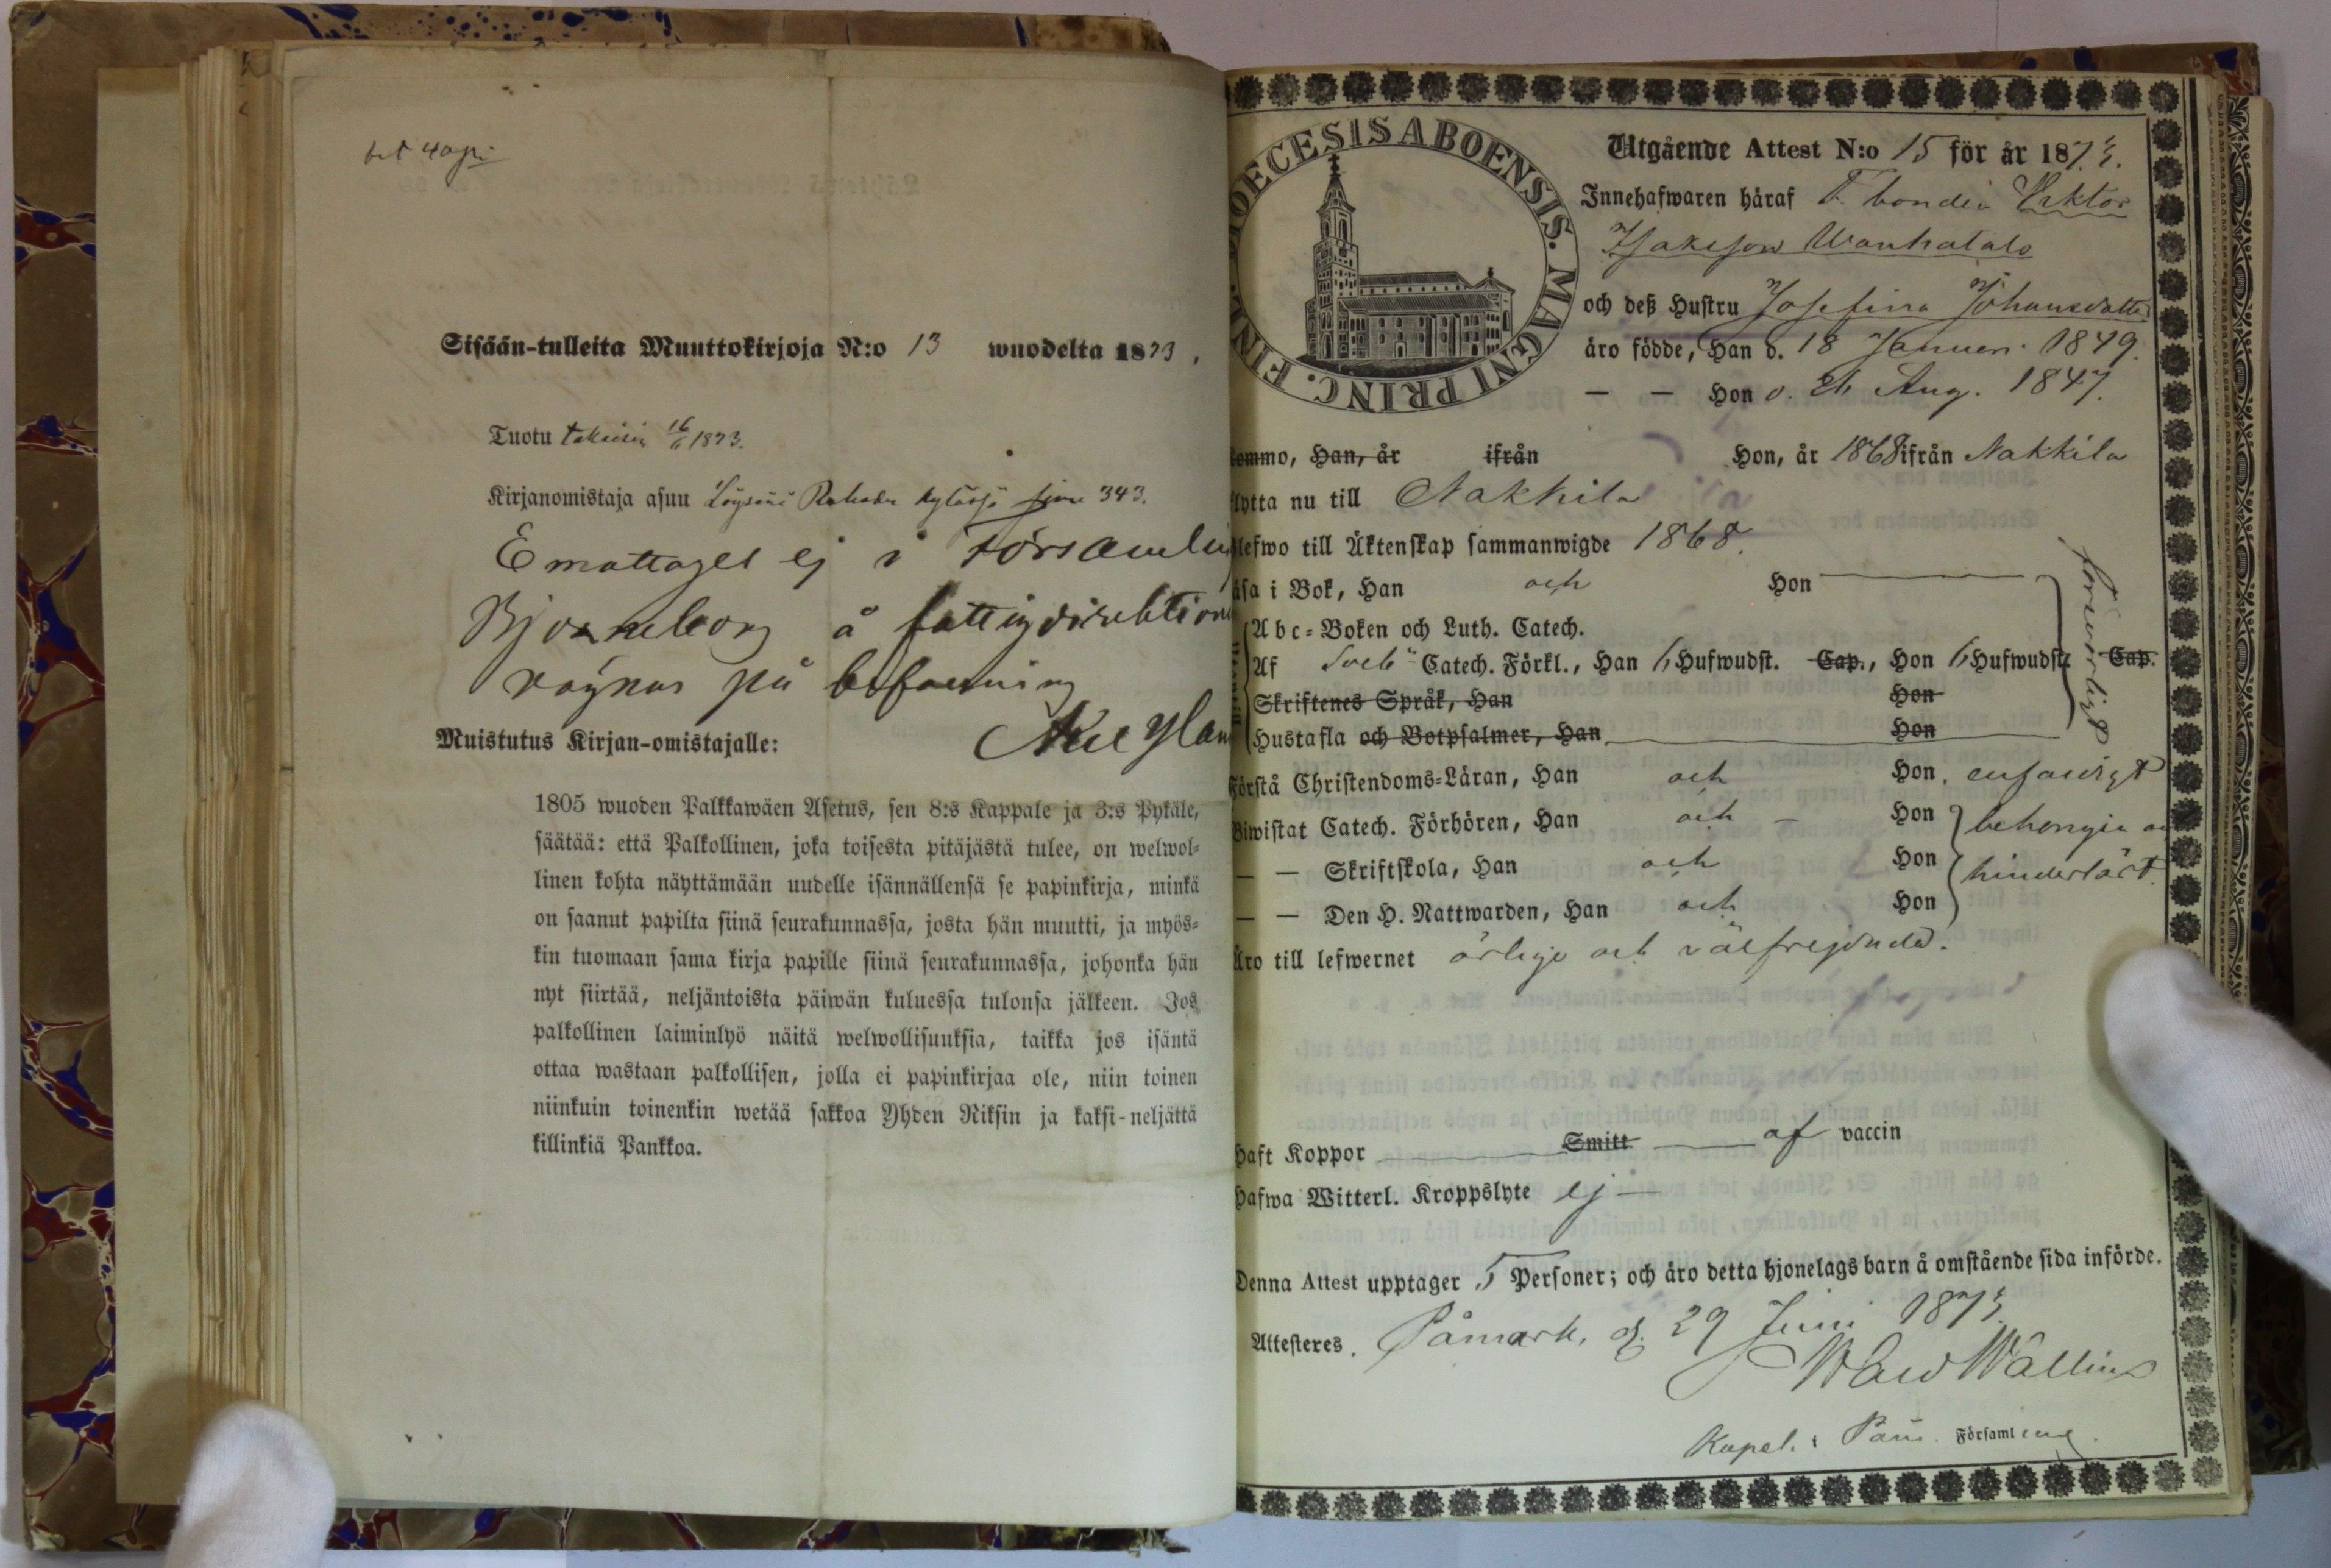 Sisään-tulleita Muuttokirjoja N:o 13 wuodelta 1873,
Tuotu takaisin 16/6 1873.
Kirjanomistaja asuu 343.
Emottages ej i Församling
Björneborg å fattigdirektions
vägnar på befallning
Muistutus Kirjan-omistajalle:
1805 wuoden Palkkawäen Asetus, sen 8:s Kappale ja 3:s Pykäle,
säätää: että Palkollinen, joka toisesta pitäjästä tulee, on welwol-
linen kohta näyttämään uudelle isännällensä se papinkirja, minkä
on saanut papilta siinä seurakunnassa, josta hän muutti, ja myös-
kin tuomaan sama kirja papille siinä seurakunnassa, johonka hän
nyt siirtää, neljäntoista päiwän kuluessa tulonsa jälkeen. Jos
palkollinen laiminlyö näitä welwollisuuksia, taikka jos isäntä
ottaa wastaan palkollisen, jolla ei papinkirjaa ole, niin toinen
niinkuin toinenkin wetää sakkoa Yhden Riksin ja kaksi-neljättä
killinkiä Pankkoa.
DIOECESIS ABOENSIS. MAGNI PRINC. FINL.
Utgående Attest N:o 15 för år 1873.
Innehafwaren häraf F. bonden Viktor
Isaksson Wanhatalo
och deß Hustru Josefina Johansdotter
äro födde, Han d. 18 Januari 1849.
— — Hon d. 21 Aug. 1847.
kommo, Han, år ifrån Hon, år 1868 ifrån Nakkila
flytta nu till Nakkila
blefwo till Äktenskap sammanwigde 1868.
läsa i Bok, Han och Hon
Abc-Boken och Luth. Catech.
Af Sveb. Catech. Förkl., Han 6 Hufwudst. Cap., Hon 6 Hufwudst. Cap.
Skriftenes Språk, Han Hon
Hustafla och Botpsalmer, Han Hon
försvarligt
Förstå Christendoms-Läran, Han och Hon, enfaldigt
Biwistat Catech. Förhören, Han och — Hon
— — Skriftskola, Han och Hon
— — Den H. Nattwarden, Han och Hon
behörigen och
hinderlöst.
Äro till lefwernet ärliga och välfrejdade.
Haft Koppor Smitt af vaccin
Hafwa Witterl. Kroppslyte ej —
Denna Attest upptager 5 Personer; och äro detta hjonelags barn å omstående sida införde.
Attesteres. Påmark, d. 29 Juni 1873.
Kapel. i Påm. Församling.